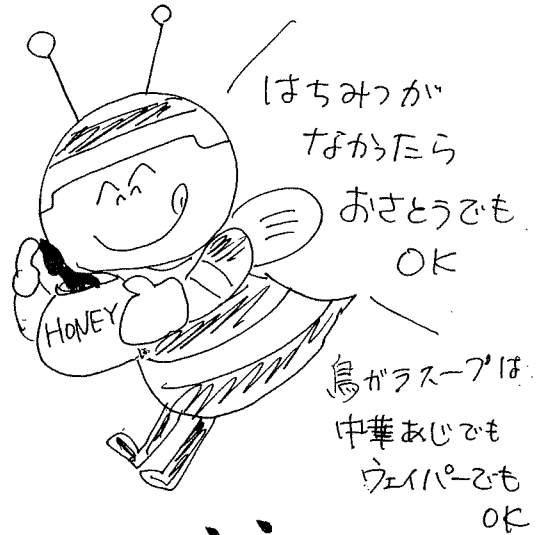 はちみつが
なかったら
おさとうでも
OK
HONEY
鳥ガラスープは
中華あじでも
ウェイパーでも
OK